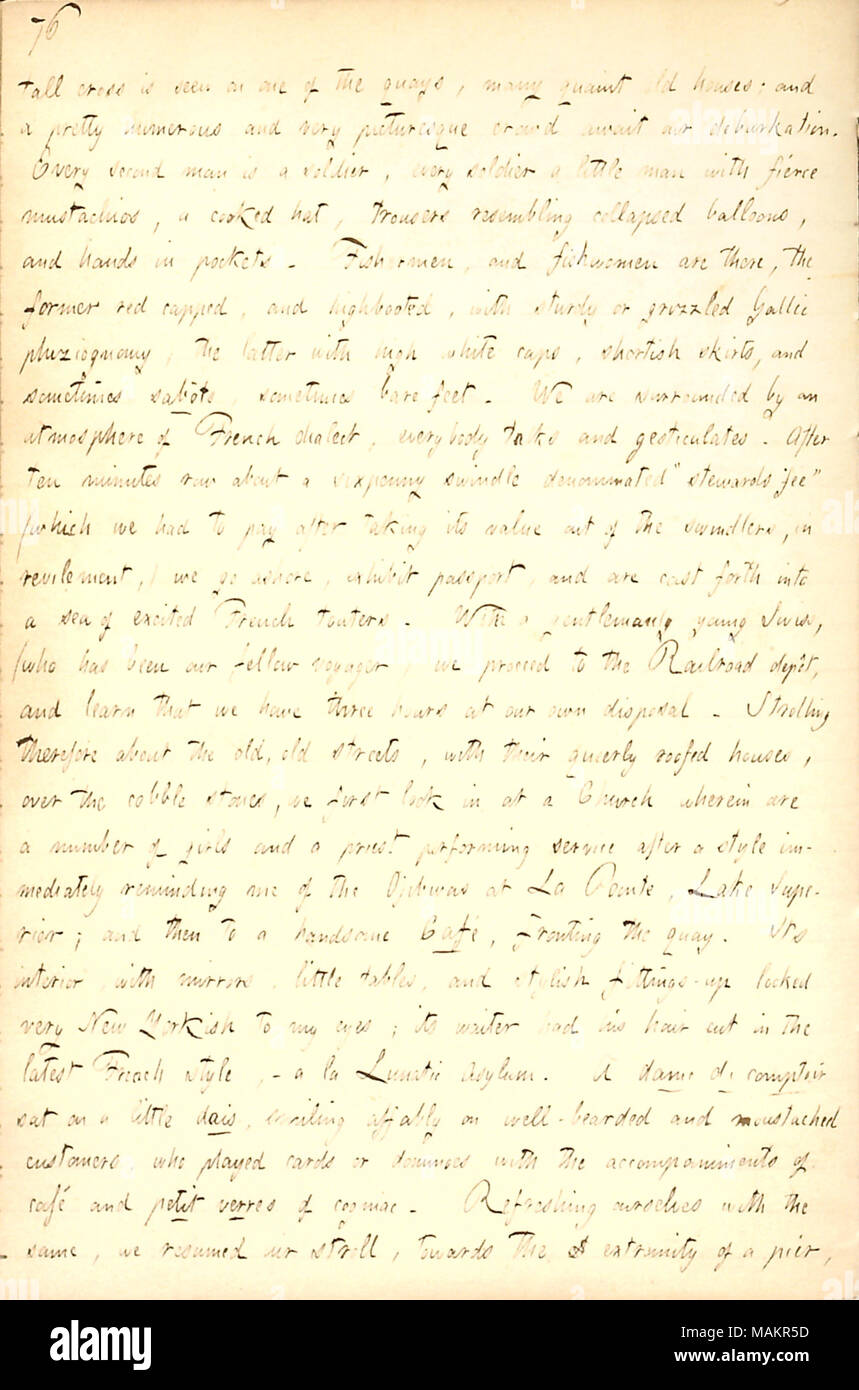 76
tall cross is seen on one of the quays, many quaint old houses; and
a pretty numerous and very picturesque crowd await our debarkation.
Every second man is a soldier, every soldier a little man with fierce
mustachios, a cocked hat, trousers resembling collapsed balloons,
and hands in pockets. Fishermen, and fishwomen are there, the
former red capped, and highbooted, with sturdy or grizzled Gallic
phiziognomy, the latter with high white caps, shortish skirts, and
sometimes sabôts, sometimes bare feet. We are surrounded by an
atmosphere of French dialect, everybody talks and gesticulates. After
ten minutes row about a sixpenny swindle denominated "stewards fee"
(which we had to pay after taking its value out of the swindlers, in
revilement,) we go ashore, exhibit passport, and are cast forth into
a sea of excited French touters. With a gentlemanly young Swiss,
(who has been our fellow voyager) we proceed to the Railroad depôt,
and learn that we have three hours at our own disposal. Strolling
therefore about the old, old streets, with their queerly roofed houses,
over the cobble stones, we first look in at a Church wherein are
a number of girls and a priest performing service after a style im-
mediately reminding me of the Ojibwas at La Pointe, Lake Supe-
rior; and then to a handsome Café, fronting the quay. It's
interior, with mirrors, little tables, and stylish fittings-up looked
very New Yorkish to my eyes; its waiter had his hair cut in the
latest French style, - a la Lunatic Asylum. A dame de comptoir
sat on a little dais, smiling affably on well-bearded and moustached
customers, who played cards or dominoes with the accompaniments of
café and petit verres of cogniac. Refreshing ourselves with the
same, we resumed our stroll, towards the extremity of a pier,
alamy
Image ID: MAKR5D
www.alamy.com